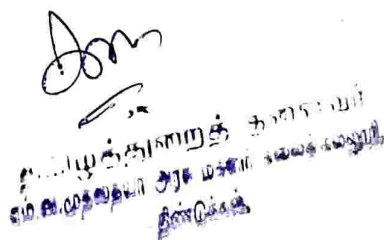 தமிழ்த்துறைத் தலைவர்
எம்.வி.முத்தையா அரசு மகளிர் கலைக் கல்லூரி,
திண்டுக்கல்